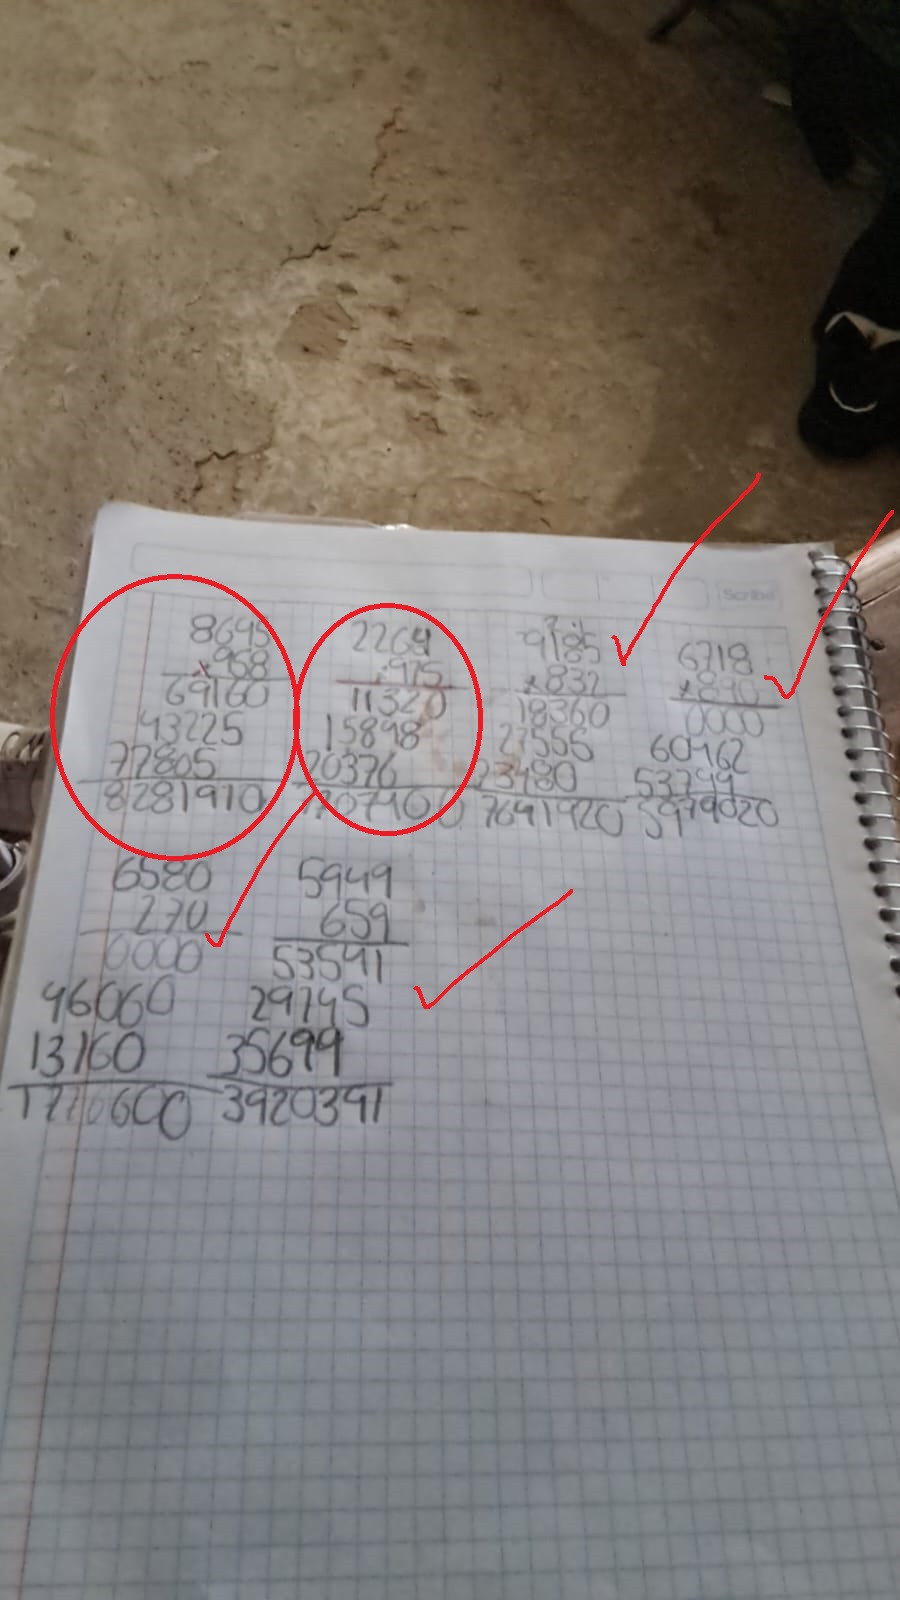 Scribe
8645
x 968
69160
43225
77805
8281910
2264
975
11320
15898
20376
9185
x 832
18360
27555
7641920
6718
0000
60462
53744
5979020
6580
270
0000
46060
13160
5949
659
53541
29745
35699
3920391